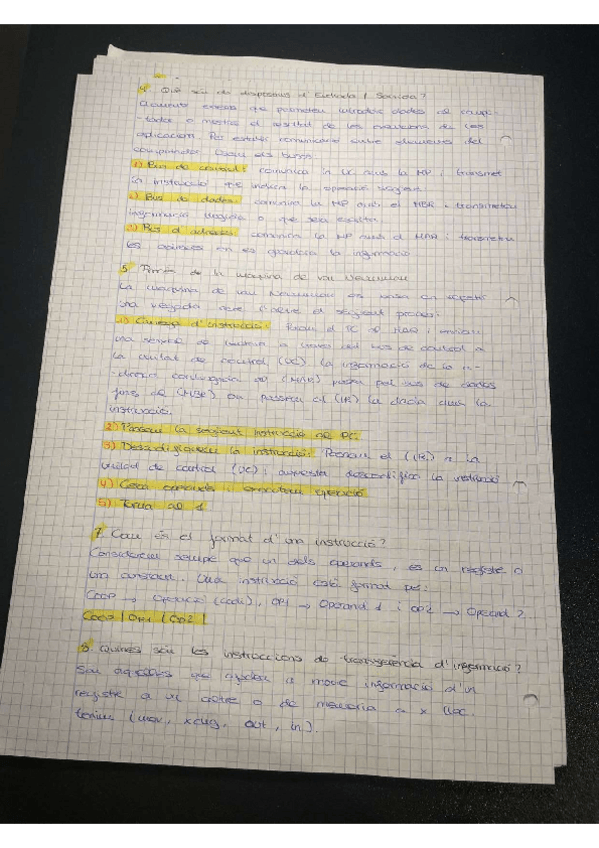 4. Què són els dispositius d'Entrada / Sortida?
Elements externs que permeten introduir dades al compu-
-tador o mostrar el resultat de les execucions de les
aplicacions. Per establir comunicació entre elements del
computador tenim els busos:
1) Bus de control: comunica la UC amb la MP i transmet
la instrucció que indica la operació
2) Bus de dades: comunica la MP amb el MBR i transmeten
informació llegida o que serà escrita.
3) Bus d'adreces: comunica la MP amb el MAR i transmeten
les adreces on es guardarà la informació
5. de la màquina de von Neumann
La màquina de von Neumann es basa en repetir
una vegada rere l'altre el següent procés:
1) d'instrucció: el PC al MAR i enviem
una senyal de a través del bus de control a
la unitat de control (UC). la informació de la
-direcció al (MAR) passa pel bus de dades
fins al (MBR) on passarà al (IR) la dada amb la
instrucció.
2) Passem la següent instrucció al PC.
3) Descodifiquem la instrucció: Passem el (IR) a la
unitat de control (UC) i aquesta descodifica la instrucció
4) Cerca operands i executem operació
5) Torna al 1
7. Com és el format d'una instrucció?
Considerem sempre que un dels operands, és un registre o
un constant. Una instrucció està format per:
COOP → Operació (codi), OP1 → Operand 1 i OP2 → Operand 2
COOP | OP1 | OP2 |
8. Quines són les instruccions de transferència d'informació?
Són aquelles que ajuden a moure informació d'un
registre a un altre o de memòria a x lloc.
tenim (mov, xchg, out, in).